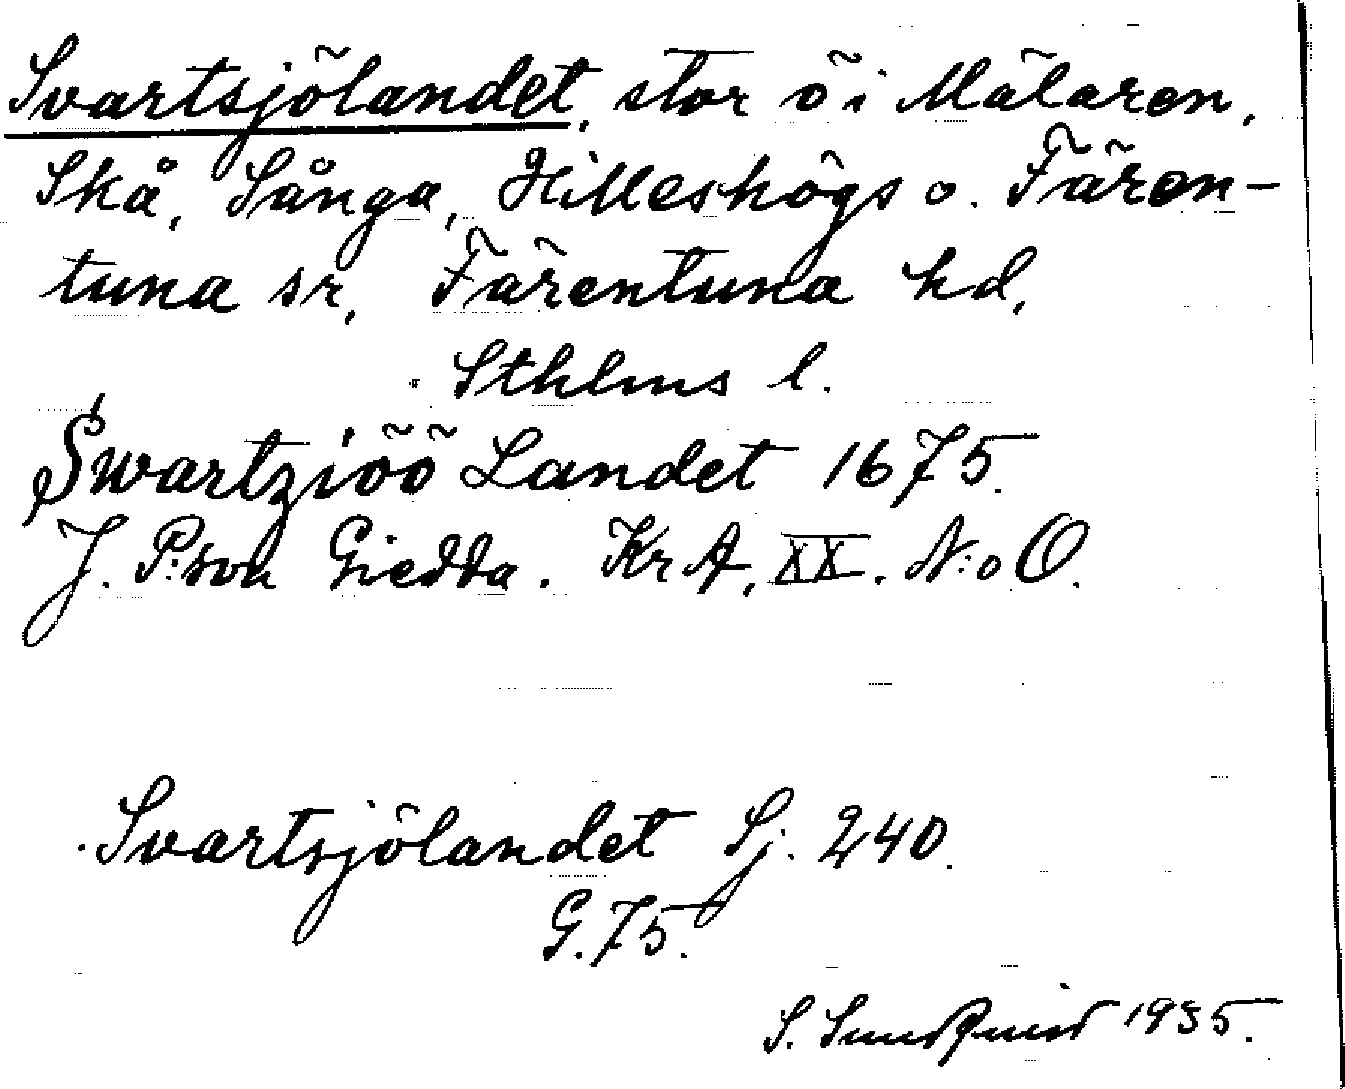 Svartsjölandet, stor ö i Mälaren,
Skå, Sånga, Hilleshögs o. Fären-
tuna sr, Färentuna hd,
Sthlms l.
Swartziöö Landet 1675.
J. P:son Giedda. KrA, XX. N:o O.
Svartsjölandet Sj. 240.
G. 75.
S. Sundquist 1935.